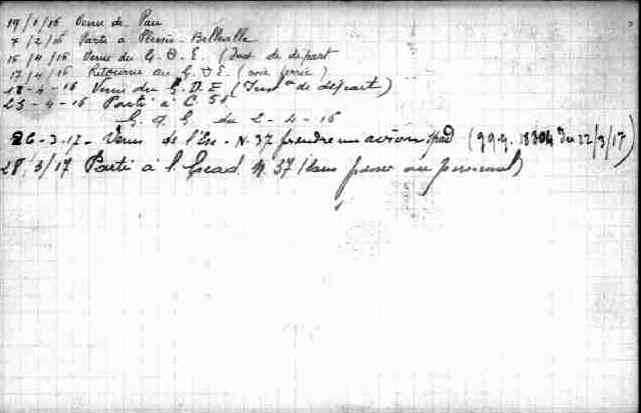 19/1/16 Venu de Pau
7/2/16 Parti à Plessis-Belleville
15/4/16 Venu du G.D.E. (Inst. de départ
17/4/16 Retourné au G.D.E. (voie ferrée)
18-4-16 Venu du G.D.E (Inst. de départ)
23-4-16 Parti à C. 51
G.Q.G. du 2-4-16
26-3-17- Venu de l'Esc. N.37 prendre un avion Spad (G.Q.G. 18304 du 22/3/17)
28/3/17 Parti à l'Escad. N.37 (sans passer au personnel)